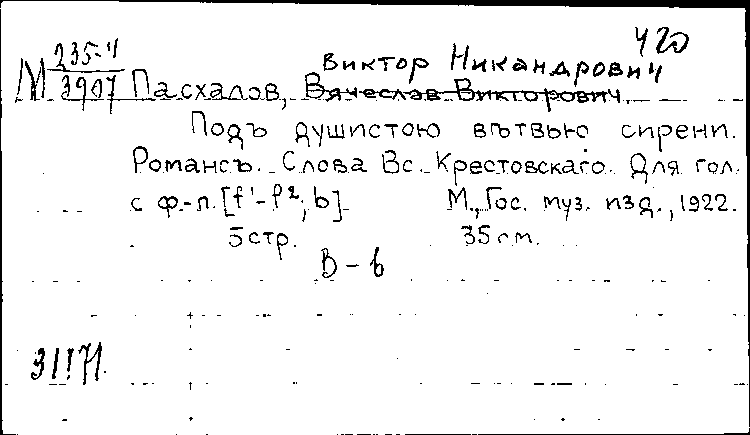 420
М 235-4/3907
Виктор Никандрович
Пасхалов, Вячеслав Викторович.
Подъ душистою вѣтвью сирени.
Романсъ. Слова Вс. Крестовскаго. Для гол.
с ф.-п. [f¹-f²; b]. М., Гос. муз. изд., 1922.
5 стр. 35 см.
В - в
31171